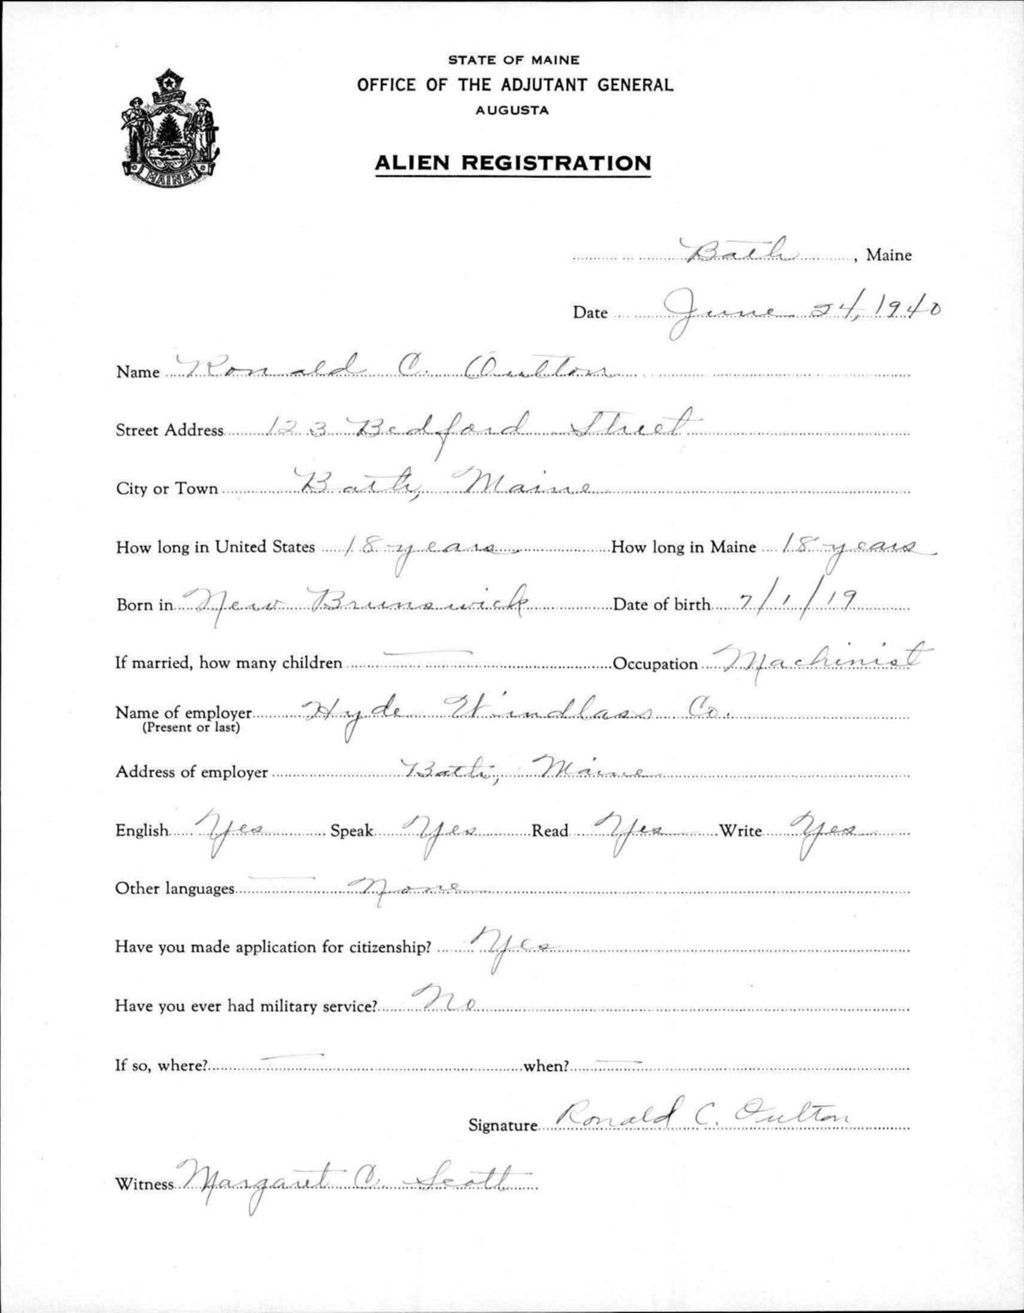 STATE OF MAINE
OFFICE OF THE ADJUTANT GENERAL
AUGUSTA
ALIEN REGISTRATION
MAINE
Bath, Maine
Date June 24, 1940
Name Ronald C. Oulton
Street Address 123 Bedford Street
City or Town Bath, Maine
How long in United States 18 years. How long in Maine 18 years
Born in New Brunswick Date of birth 7/1/19
If married, how many children — Occupation Machinist
Name of employer Hyde Windlass Co.
(Present or last)
Address of employer Bath, Maine
English Yes Speak Yes Read Yes Write Yes
Other languages — None
Have you made application for citizenship? Yes
Have you ever had military service? No
If so, where? — when? —
Signature Ronald C. Oulton
Witness Margaret C. Scott